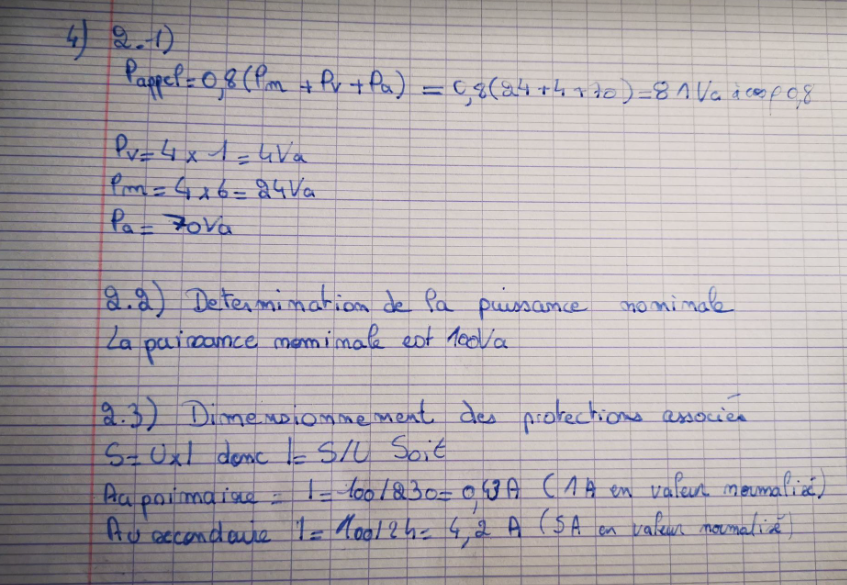 4) 2.-1)
Pappel=0,8(Pm + Pv + Pa) = 0,8(24+4+70)=81Va à cosf 0,8
Pv= 4 x 1 = 4Va
Pm = 4 x 6 = 24Va
Pa = 70Va
2.2) Determination de la puissance nominale
La puissance nominale est 100Va
2.3) Dimensionnement des protections associées
S= Ux1 donc I= S/U Soit
Au primaire = I = 100/230= 0,43A (1A en valeur normalisé)
Au secondaire I = 100/24= 4,2 A (5A en valeur normalisé)